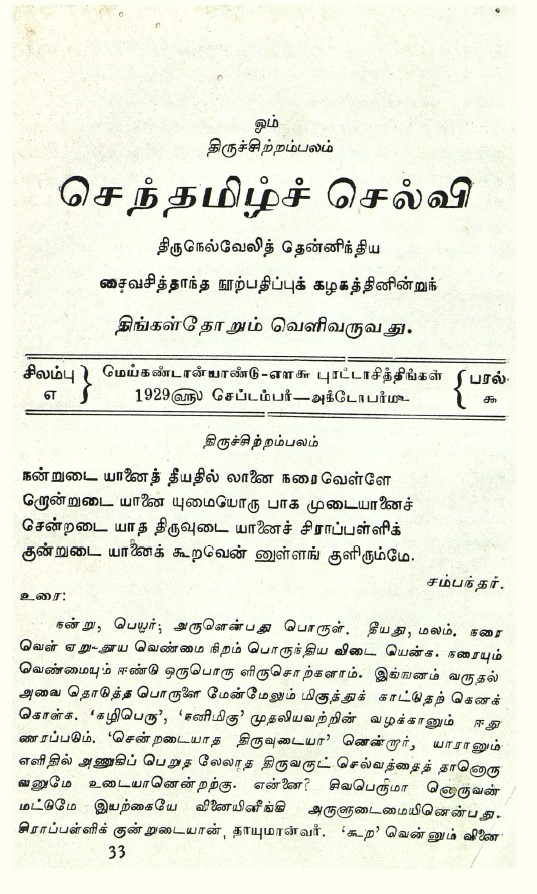 ஓம்
திருச்சிற்றம்பலம்
செந்தமிழ்ச் செல்வி
திருநெல்வேலித் தென்னிந்திய
சைவசித்தாந்த நூற்பதிப்புக் கழகத்தினின்றுந்
திங்கள்தோறும் வெளிவருவது.
சிலம்பு எ } மெய்கண்டான்யாண்டு-எாகூ புரட்டாசித்திங்கள் { பரல் கூ
1929௵ செப்டம்பர்—அக்டோபர்௴
திருச்சிற்றம்பலம்
நன்றுடை யானைத் தீயதில் லானை நரைவெள்ளே
றொன்றுடை யானை யுமையொரு பாக முடையானைச்
சென்றடை யாத திருவுடை யானைச் சிராப்பள்ளிக்
குன்றுடை யானைக் கூறவென் னுள்ளங் குளிரும்மே.
சம்பந்தர்.
உரை:
நன்று, பெயர்; அருளென்பது பொருள். தீயது, மலம். நரை
வெள் ஏறு-தூய வெண்மை நிறம் பொருந்திய விடை யென்க. நரையும்
வெண்மையும் ஈண்டு ஒருபொரு ளிருசொற்களாம். இங்ஙனம் வருதல்
அவை தொடுத்த பொருளை மேன்மேலும் மிகுத்துக் காட்டுதற் கெனக்
கொள்க. ‘கழிபெரு’, ‘கனிமிகு’ முதலியவற்றின் வழக்கானும் ஈது
ணரப்படும். ‘சென்றடையாத திருவுடையா’ னென்றார், யாரானும்
எளிதில் அணுகிப் பெறுத லேலாத திருவருட் செல்வத்தைத் தானொரு
வனுமே உடையானென்றற்கு. என்னை? சிவபெருமா னொருவன்
மட்டுமே இயற்கையே வினையினீங்கி அருளுடைமையினென்பது.
சிராப்பள்ளிக் குன்றுடையான், தாயுமானவர். ‘கூற’ வென்னும் வினை
33